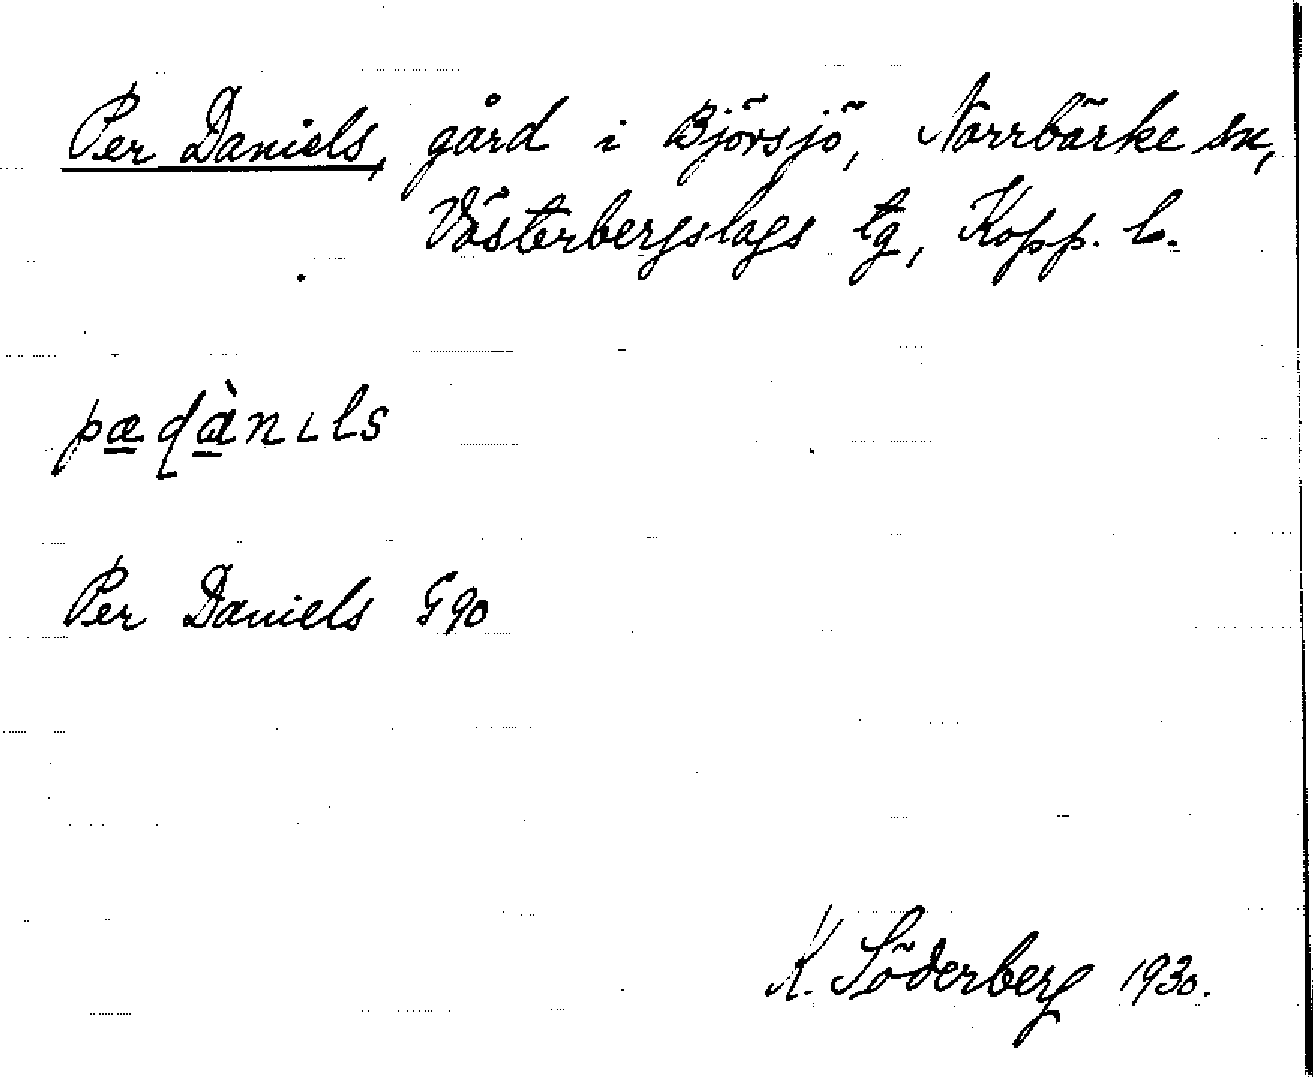 Per Daniels, gård i Björsjö, Norrbärke sn,
Västerbergslags tg, Kopp. l.
pæḍànɩls
Per Daniels G 90
K. Söderberg 1930.